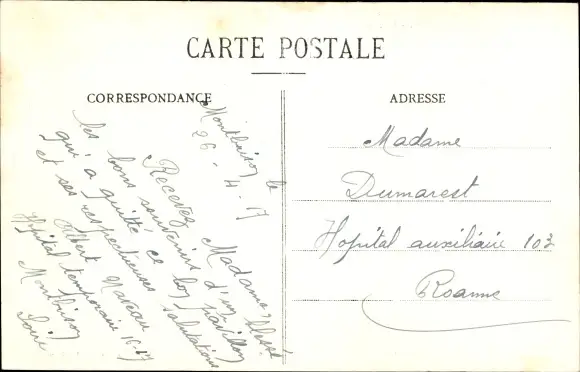 CARTE POSTALE
CORRESPONDANCE
ADRESSE
Montbrison le
26 - 4 - 17
Recevez Madame,
les bons souvenirs d'un blessé
qui a quitté ce bon pavillon
et ses respectueuses salutations
Albert
Hôpital temporaire 16-67
Montbrison
Loire
Madame
Dumarest
Hopital auxiliaire 102
Roanne